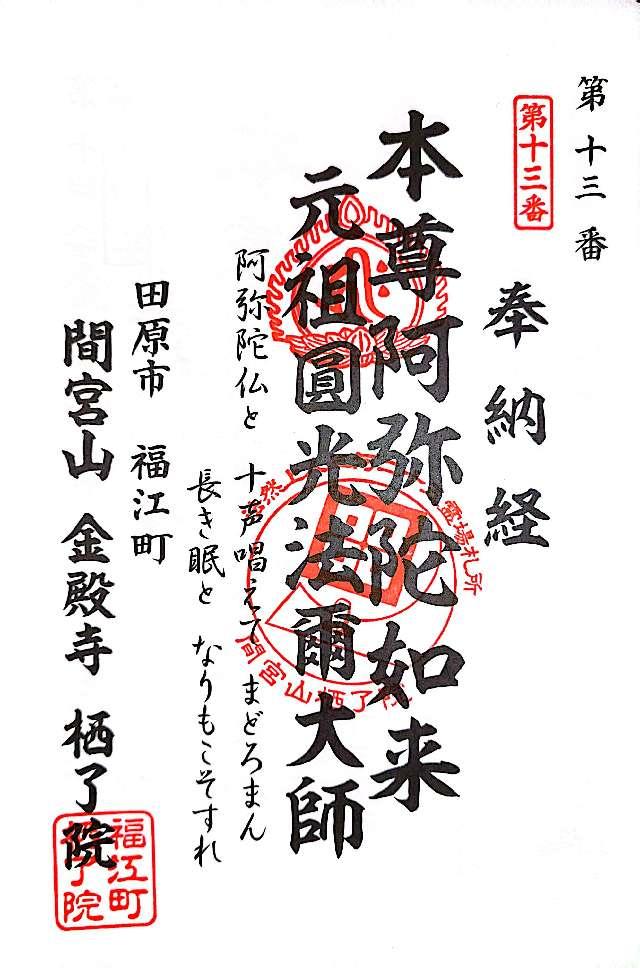 第十三番
第十三番
奉納経
本尊阿弥陀如来
元祖圓光法爾大師
阿弥陀仏と 十声唱えて まどろまん
長き眠と なりもこそすれ
田原市 福江町
間宮山 金殿寺 栖了院
霊場札所
間宮山栖了院
福江町
栖了院